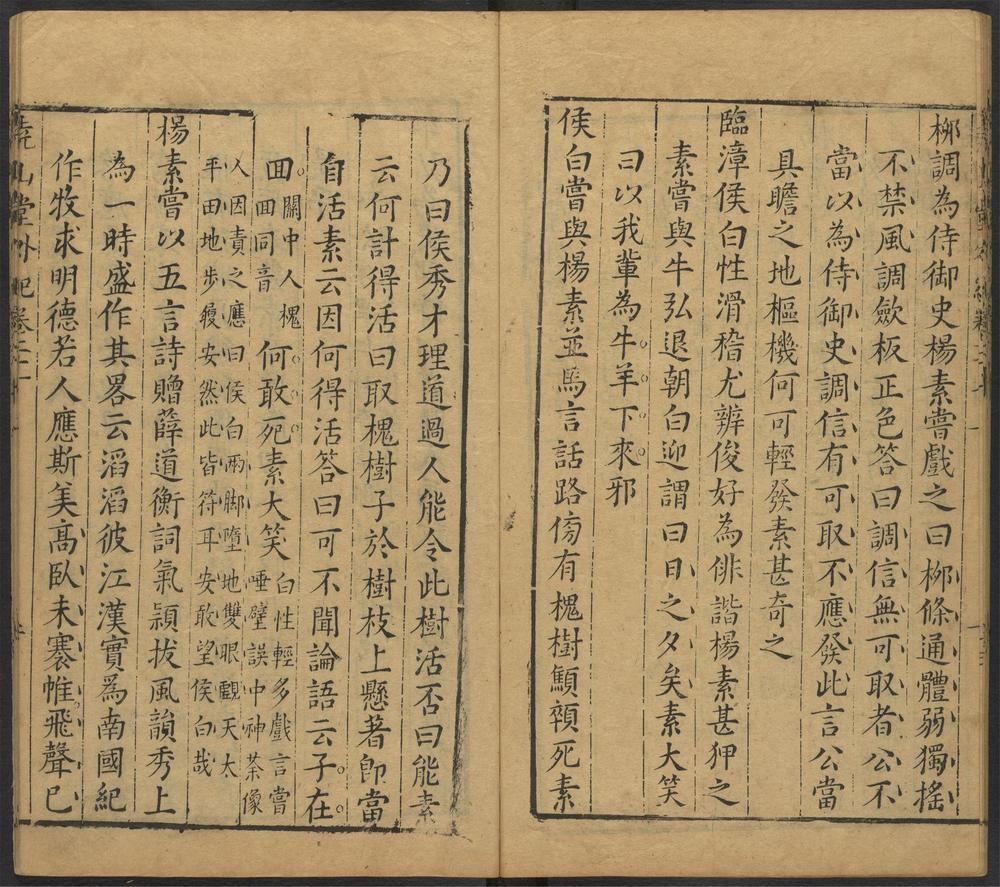 柳調為侍御史楊素嘗戲之曰柳條通體弱獨搖
不禁風調歛板正色答曰調信無可取者公不
當以為侍御史調信有可取不應發此言公當
具瞻之地樞機何可輕發素甚奇之
臨漳侯白性滑稽尤辨俊好為俳諧楊素甚狎之
素嘗與牛弘退朝白迎謂曰日之夕矣素大笑
曰以我輩為牛羊下來邪
侯白嘗與楊素並馬言話路傍有槐樹顦顇死素
乃曰侯秀才理道過人能令此樹活否曰能素
云何計得活曰取槐樹子於樹枝上懸著卽當
自活素云因何得活答曰可不聞論語云子在
囬
關中人槐
囬同音
何敢死素大笑
白性輕多戲言嘗
唾壁誤中神荼像
人因責之應曰侯白兩脚墮地雙眼覷天太
平田地步履安然此皆符耳安敢望侯白哉
楊素嘗以五言詩贈薛道衡詞氣潁拔風韻秀上
為一時盛作其畧云滔滔彼江漢實爲南國紀
作牧求明德若人應斯美高臥未褰帷飛聲已
堯山堂外紀卷二十